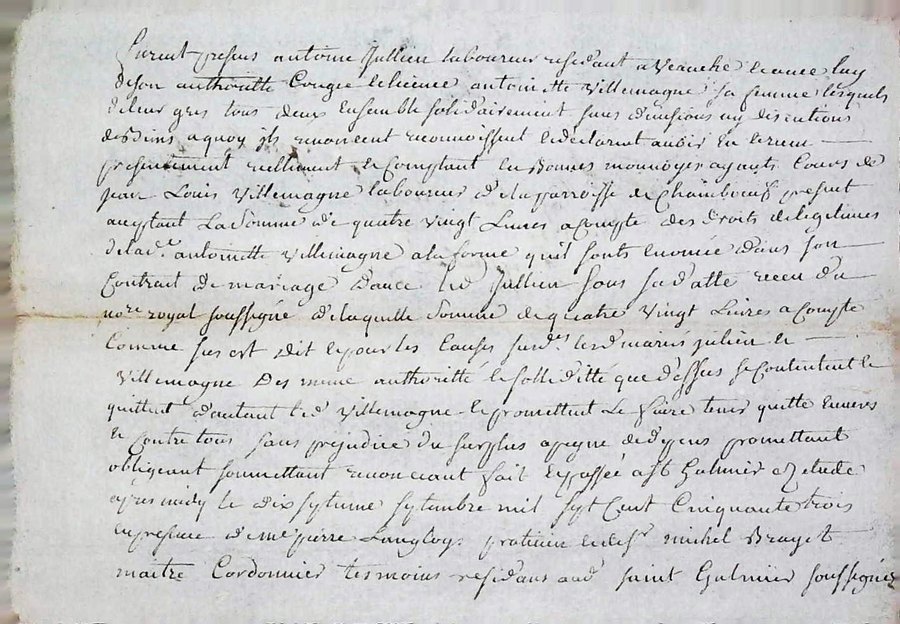 furent presens antoine Jullien laboureur residant a Veauche lequel luy
de son authoritté Congé & licence antoinette Villemagne sa femme lesquels
de leur gres tous deux Ensemble solidairement sans divisions ny discutions
de Biens a quoy ils renoncent reconnoissent & déclarent avoir Eu & receu
presentement reellement & Comptant en Bonnes monnoyes ayants Cours de
jean Louis Villemagne laboureur de la parroisse de Chambœuf present
acceptant La Somme de quatre vingt Livres a Compte des droits de legitimes
de lad.e antoinette Villemagne a la forme qu'il sont enoncée dans son
Contrait de mariage d'avec led Jullien sous sa datte receu du
no.re royal soussigné de laquelle Somme de quatre Vingt Livres a Compte
Comme sus est dit & pour les Causes susd.es lesd mariés julien &
Villemagne Des meme authoritté & sollidité que dessus se Contentent &
quittent d'autant led Villemagne & promettent Le faire tenir quitte Envers
& Contre tous sans prejudice du surplus a peyne de depens promettant
obligeant soumettant renonceant fait & passée a St Galmier Etude
apres midy le dix septieme septembre mil sept Cent Cinquante trois
en presence de me pierre Langloys praticien & de sr michel Brayet
maitre Cordonnier tesmoins residans aud saint Galmier soussignéz